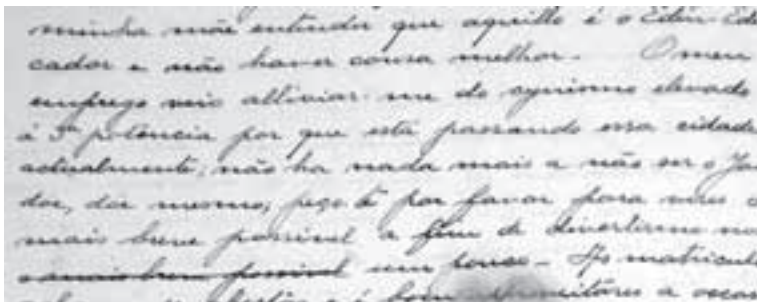 minha mãe entende que aquillo é o Eden-Edu
cador e não haver cousa melhor. O meu
emprego veio alliviar-me do cynismo elevado
á 5ª potencia por que está passando essa cidade
actualmente; não ha nada mais a não ser o Jar
dor, dôr mesmo; peço-te por favor para vires o
mais breve possivel a fim de divertirmo-nos
o mais breve possivel um pouco - As matricul
abertas e é bom aproveitares a occas